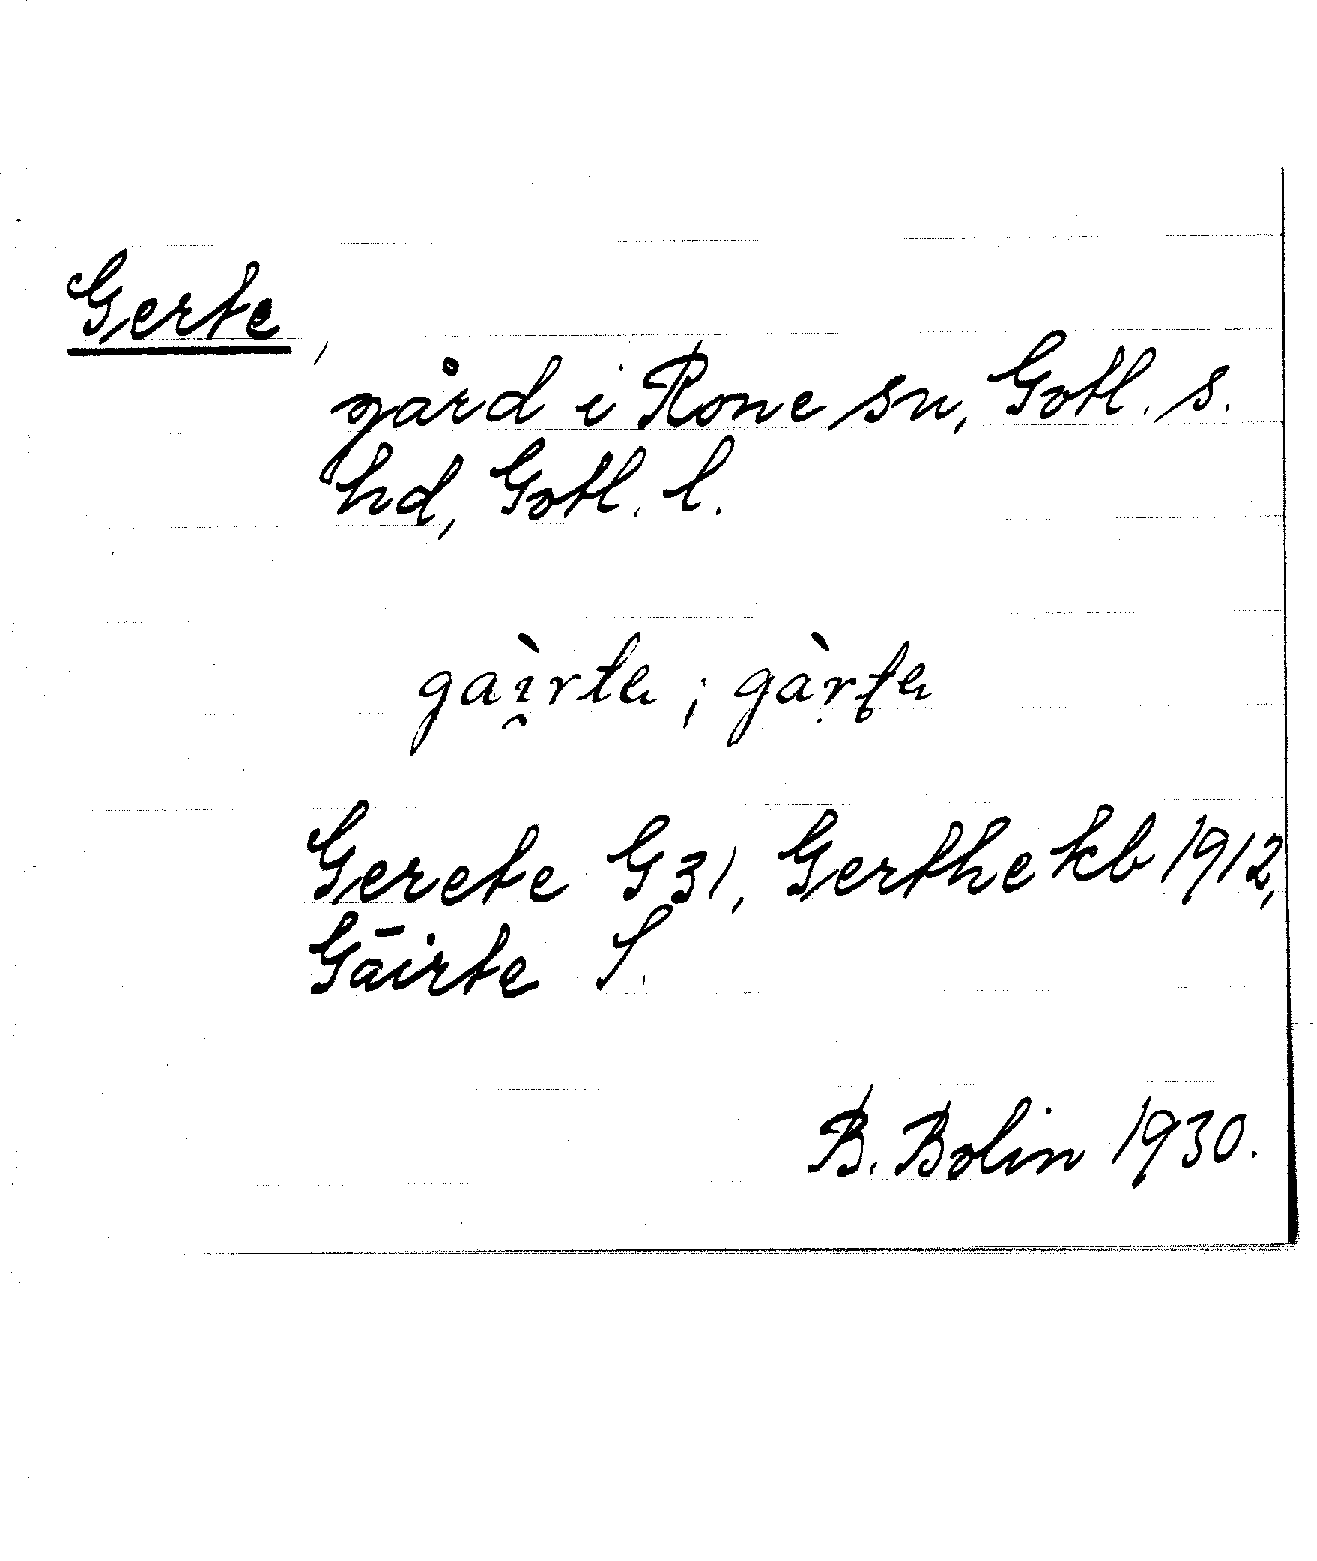 Gerte,
gård i Rone sn, Gotl. s.
hd, Gotl. l.
gài̯rtɐ ; gàrtɐ
Gerete G 31, Gerthe kb 1912,
Gāirte S.
B. Bolin 1930.